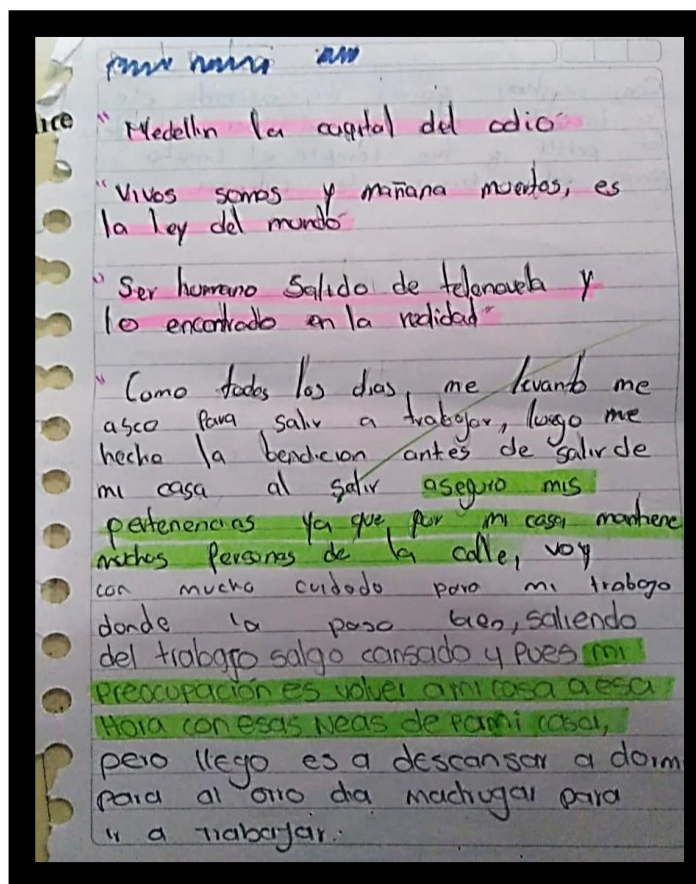 ice
"Medellin la capital del odio"
"Vivos somos y mañana muertos, es
la ley del mundo"
"Ser humano Salido de telenovela y
lo encontrado en la realidad"
"Como todos los dias, me levanto me
asco para salir a trabajar, luego me
hecho la bendicion antes de salir de
mi casa al salir aseguro mis
pertenencias ya que por mi casa mantiene
muchas Personas de la calle, voy
con mucho cuidado para mi trabajo
donde la paso bien, saliendo
del trabajo salgo cansado y pues mi
preocupación es volver a mi casa a esa
Hora con esas Neas de pami casa,
pero llego es a descansar a dorm
para al otro dia madrugar para
ir a trabajar.